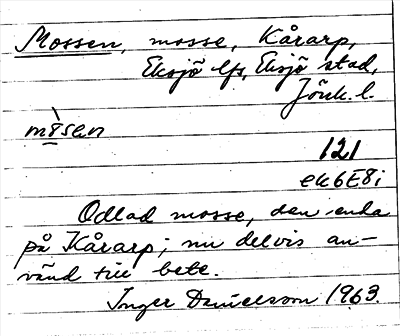 Mossen, mosse, Kårarp,
Eksjö lfs, Eksjö stad,
Jönk. l.
mòsen
121
ek6E8i
Odlad mosse, den enda
på Kårarp; nu delvis an-
vänd till bete.
Inger Danielsson 1963.